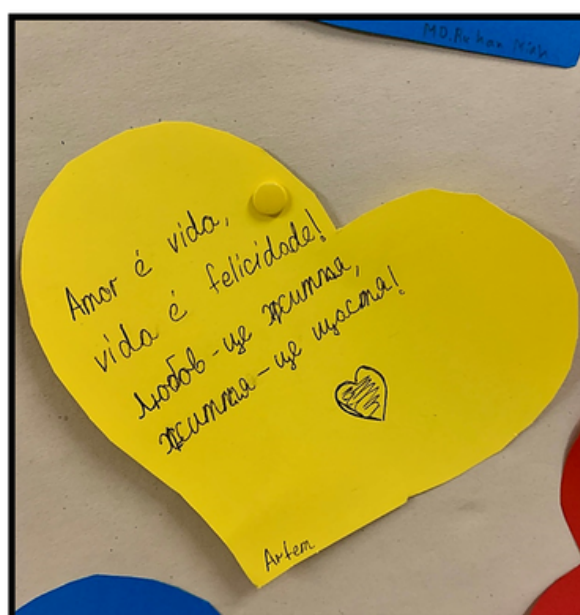 Amor é vida,
vida é felicidade!
Любов-це життя,
життя-це щастя!
Artem